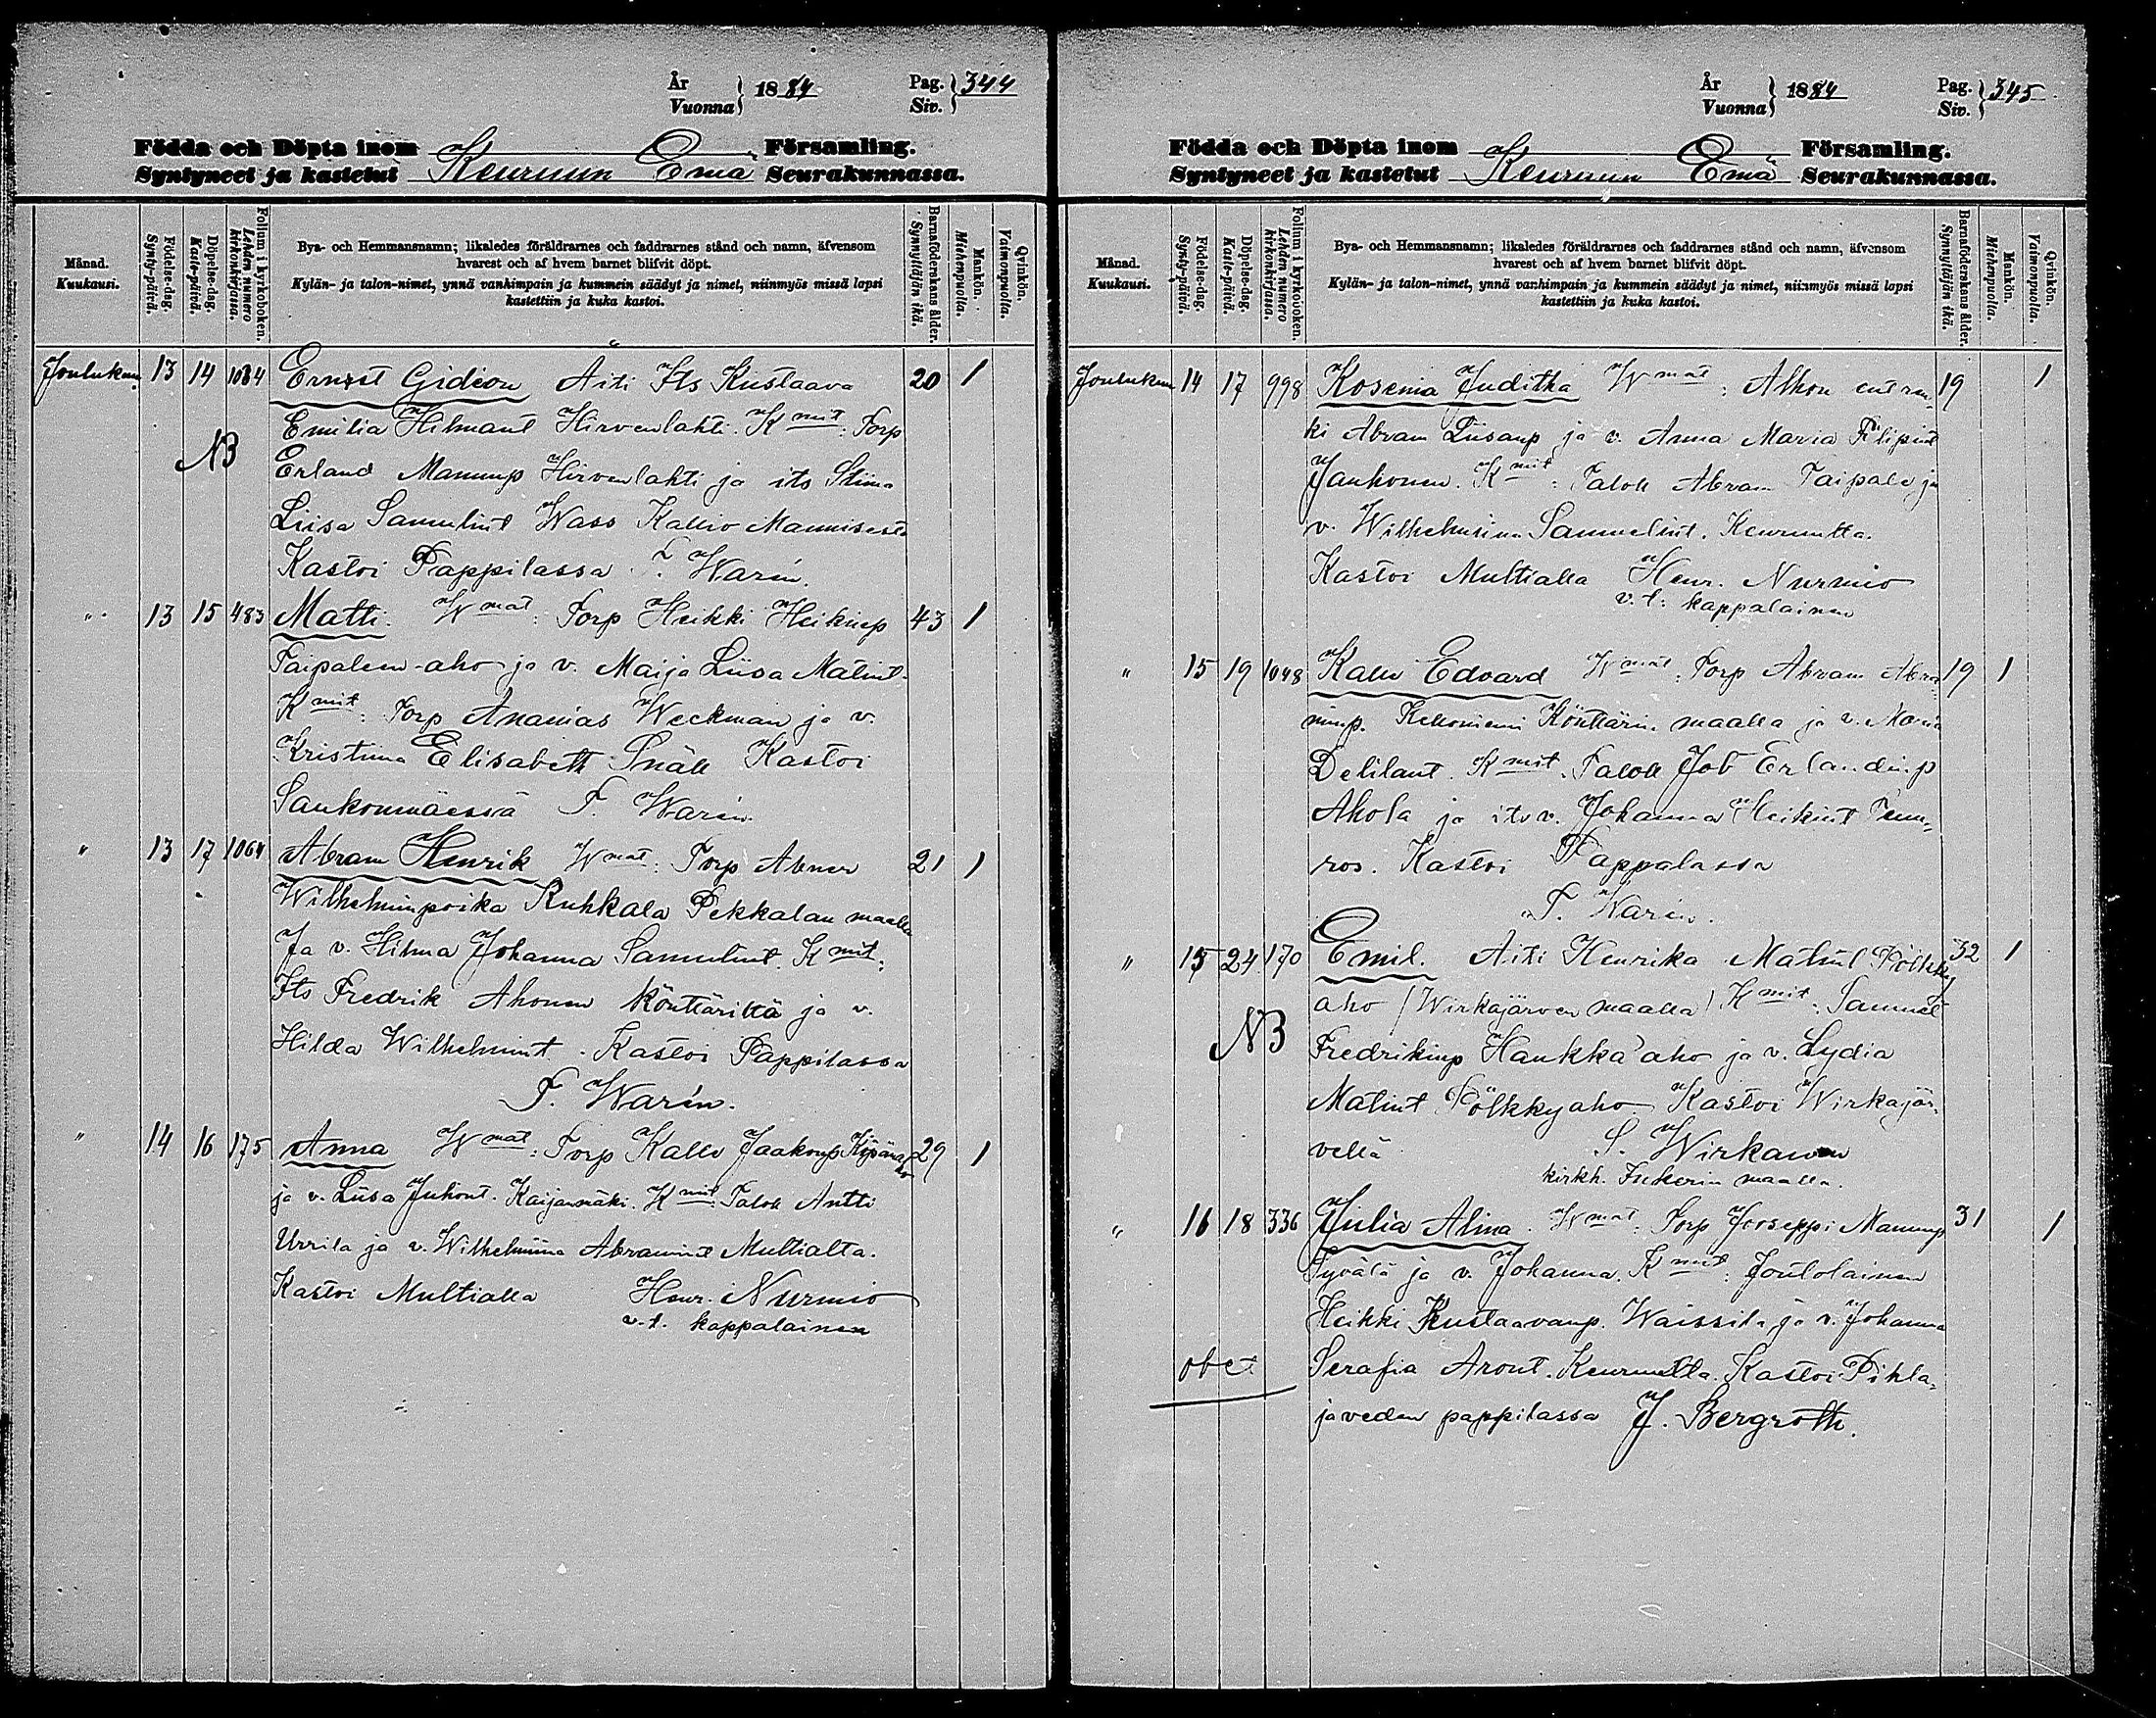 År
Vuonna } 1884 Pag.
Siv. } 344
Födda och Döpta inom Församling.
Syntyneet ja kastetut Keuruun Emä Seurakunnassa.
Månad.
Kuukausi.
Födelse-dag.
Synty-päivä.
Döpelse-dag.
Kaste-päivä.
Folium i kyrkoboken.
Lehden numero kirkonkirjassa.
Bya- och Hemmansnamn; likaledes föräldrarnes och faddrarnes stånd och namn, äfvensom
hvarest och af hvem barnet blifvit döpt.
Kylän- ja talon-nimet, ynnä vanhimpain ja kummein säädyt ja nimet, niinmyös missä lapsi
kastettiin ja kuka kastoi.
Barnaföderskans ålder.
Synnyttäjän ikä.
Mankön.
Miehenpuolia.
Qvinkön.
Vaimonpuolia.
Jouluk. 13 14 1084 Ernest Gideon Äiti Its Kustaava 20 1
Emilia Hilmant Hirvenlahti. Kmit: Torp
NB Erland Manunp Hirvenlahti ja its Stina
Liisa Samulint Wass Kallio Mannisesta
Kastoi Pappilassa F. Warén.
" 13 15 483 Matti. Wmat: Torp Heikki Heikinp 43 1
Taipaleen-aho ja v. Maija Liisa Matint.
Kmit: Torp Ananias Weckman ja v.
Kristiina Elisabett Snäll Kastoi
Saukonmäessä F. Warén.
" 13 17 1064 Abram Henrik Wmat: Torp Abner 21 1
Wilhelminpoika Ruhkala Pekkalan maalla
Ja v. Hilma Johanna Samulint. Kmit:
Its Fredrik Ahonen Könttäriltä ja v.
Hilda Wilhelmint. Kastoi Pappilassa
F. Warén.
" 14 16 175 Anna Wmat: Torp Kalle Jaakonp 29 1
ja v. Liisa Juhont. Kaijanmäki. Kmit: Taloll Antti
Urrila ja v. Wilhelmiina Abramint Multialta.
Kastoi Multialla Henr. Nurmio
v.t. kappalainen
År
Vuonna } 1884 Pag.
Siv. } 345
Födda och Döpta inom Församling.
Syntyneet ja kastetut Keuruun Emä Seurakunnassa.
Månad.
Kuukausi.
Födelse-dag.
Synty-päivä.
Döpelse-dag.
Kaste-päivä.
Folium i kyrkoboken.
Lehden numero kirkonkirjassa.
Bya- och Hemmansnamn; likaledes föräldrarnes och faddrarnes stånd och namn, äfvensom
hvarest och af hvem barnet blifvit döpt.
Kylän- ja talon-nimet, ynnä vanhimpain ja kummein säädyt ja nimet, niinmyös missä lapsi
kastettiin ja kuka kastoi.
Barnaföderskans ålder.
Synnyttäjän ikä.
Mankön.
Miehenpuolia.
Qvinkön.
Vaimonpuolia.
Jouluk. 14 17 998 Rosenia Juditha Wmat: Alhon 19 1
ki Abram Liisanp ja v. Anna Maria Filipint
Jauhonen. Kmit: Taloll Abram Taipale ja
v. Wilhelmiina Samuelint. Keuruulta.
Kastoi Multialla Henr. Nurmio
v.t: kappalainen
" 15 19 1048 Kalle Edvard Wmat: Torp Abram 19 1
minp. Könttärin maalla ja v. Maria
Delilant. Kmit. Taloll Job Erlandinp
Ahola ja its v. Johanna Heikint Tenn-
ros. Kastoi Pappalassa
F. Warén.
" 15 24 170 Emil. Äiti Henrika Matint Pölkky 32 1
aho (Wirkajärven maalla) Kmit: Samuel
NB Fredrikinp Haukka'aho ja v. Lydia
Matint Pölkkyaho. Kastoi Wirkajär-
vellä S. Wirkanen
kirkh. Inkerin maalla.
" 16 18 336 Julia Alina. Wmat: Torp Jooseppi Manunp 31 1
Tyvälä ja v. Johanna. Kmit: Joutolainen
Heikki Kustaavanp. Waissila ja v. Johanna
obet Serafia Aront. Keuruulta. Kastoi Pihla-
javeden pappilassa J. Bergroth.